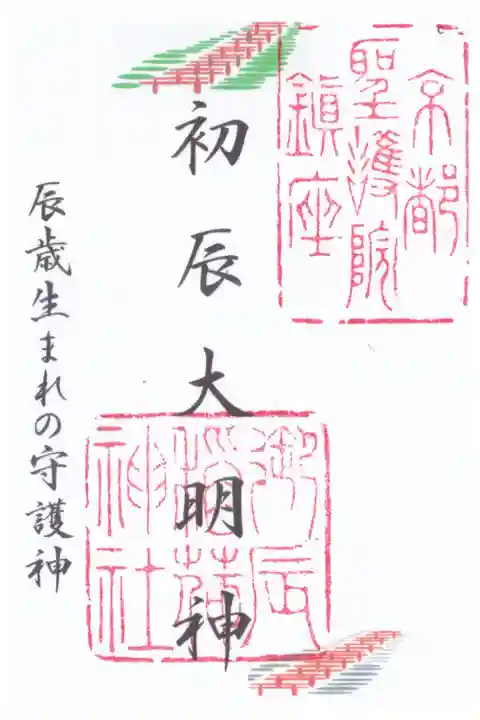 京都
聖護院
鎮座
初辰大明神
御辰
稲荷
神社
辰歳生まれの守護神